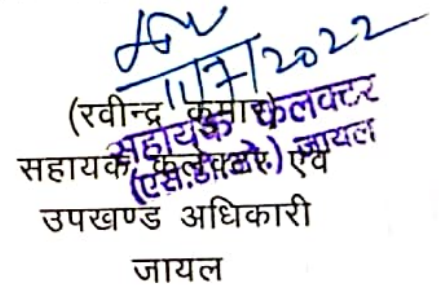 11/7/2022
(रवीन्द्र कुमार)
सहायक कलेक्टर एवं
उपखण्ड अधिकारी
जायल
सहायक कलक्टर
जायल